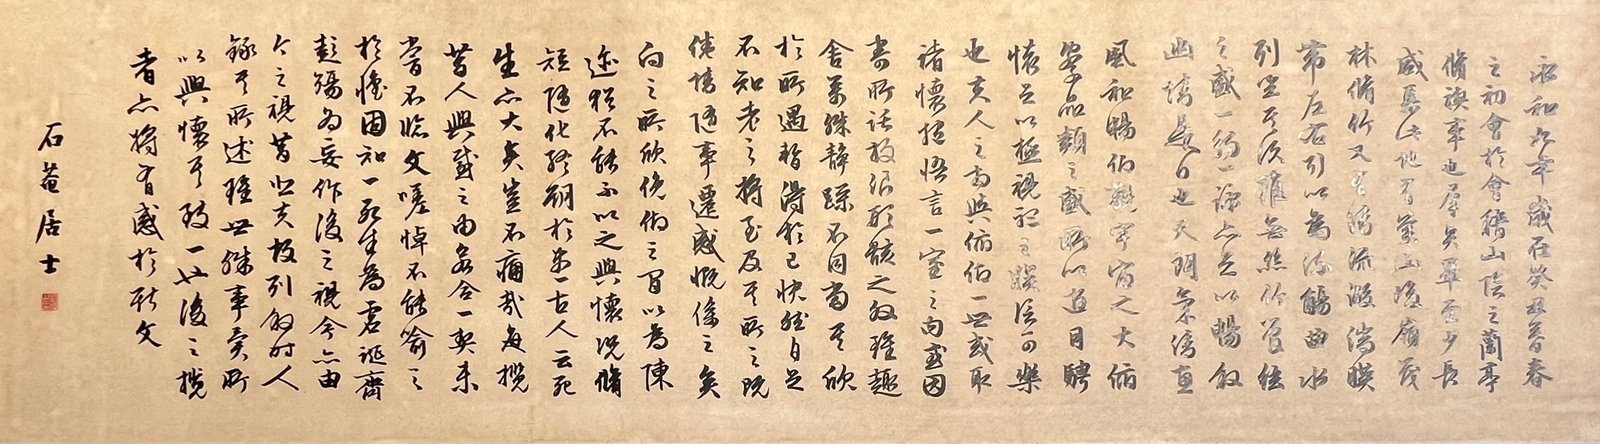 永和九年歲在癸丑暮春
之初會於會稽山陰之蘭亭
脩禊事也群賢畢至少長
咸集此地有崇山峻領茂
林脩竹又有清流激湍暎
帶左右引以為流觴曲水
列坐其次雖無絲竹管絃
之盛一觴一詠亦足以暢敘
幽情是日也天朗氣清惠
風和暢仰觀宇宙之大俯
察品類之盛所以遊目騁
懷足以極視聽之娛信可樂
也夫人之相與俯仰一世或取
諸懷抱悟言一室之內或因
寄所託放浪形骸之外雖趣
舍萬殊靜躁不同當其欣
於所遇暫得於己快然自足
不知老之將至及其所之既
倦情隨事遷感慨係之矣
向之所欣俛仰之間以為陳
迹猶不能不以之興懷況脩
短隨化終期於盡古人云死
生亦大矣豈不痛哉每攬
昔人興感之由若合一契未
嘗不臨文嗟悼不能喻之
於懷固知一死生為虛誕齊
彭殤為妄作後之視今亦由
今之視昔悲夫故列敘時人
錄其所述雖世殊事異所
以興懷其致一也後之攬
者亦將有感於斯文
石菴居士